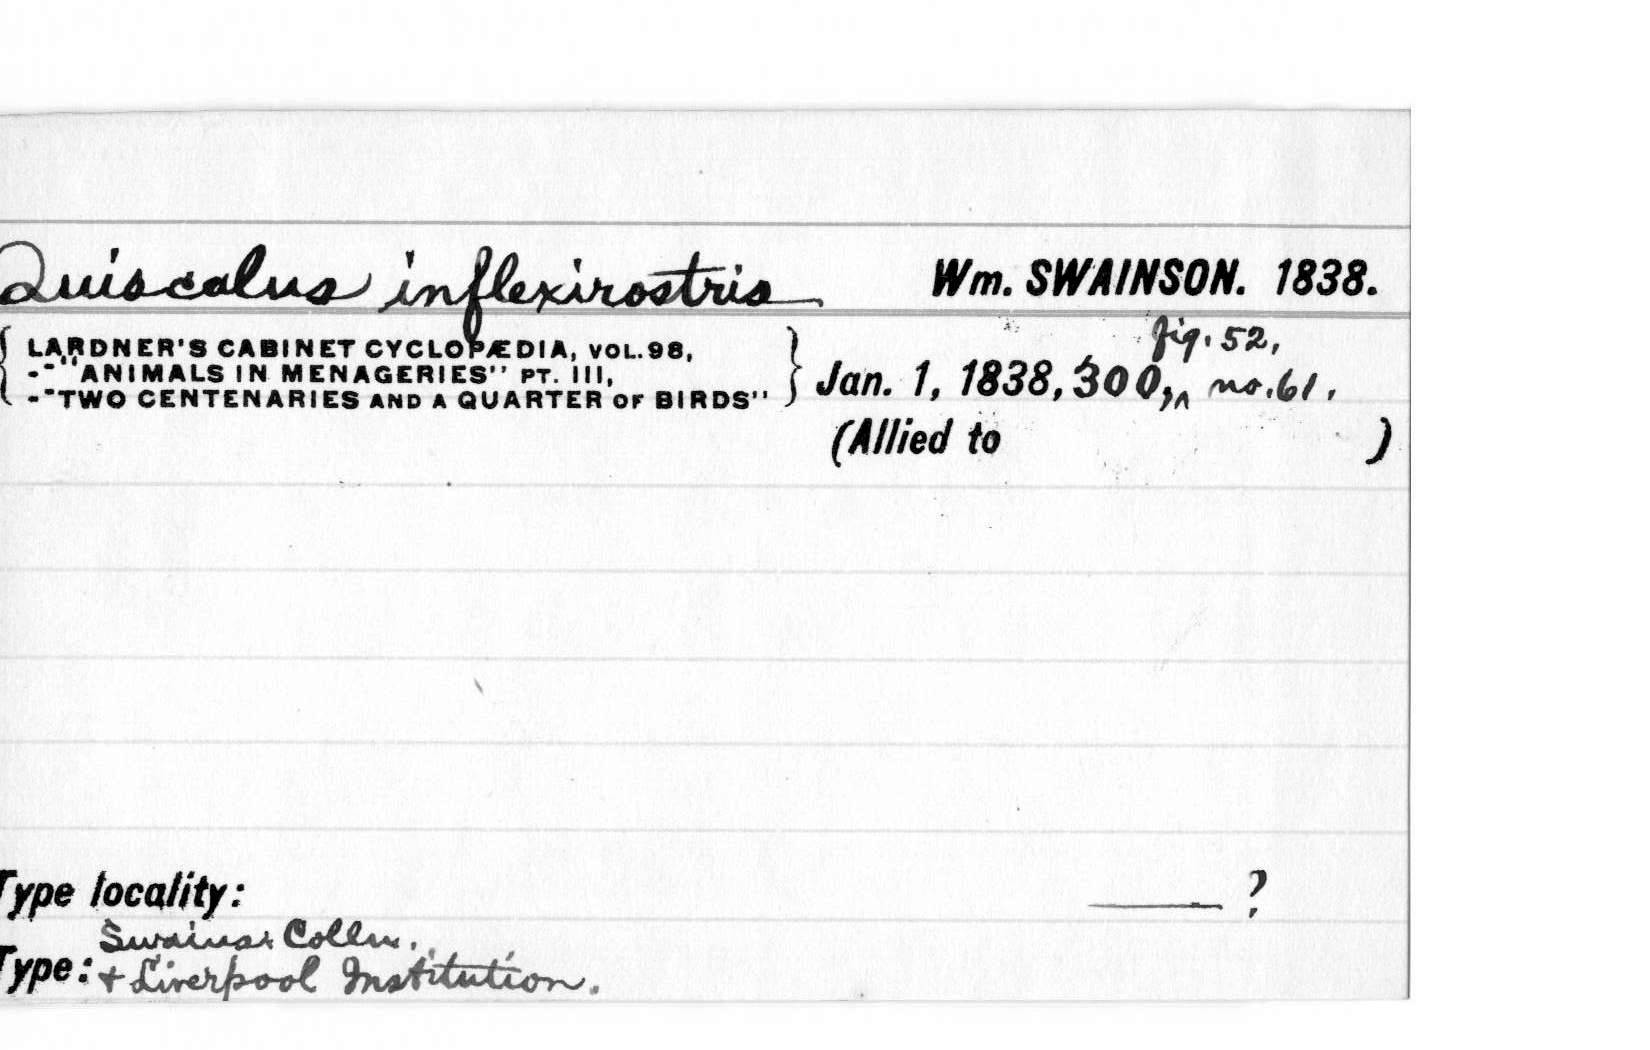 Quiscalus inflexirostris Wm. SWAINSON. 1838.
LARDNER'S CABINET CYCLOPÆDIA, VOL.98,
-"ANIMALS IN MENAGERIES" PT. III,
-"TWO CENTENARIES AND A QUARTER OF BIRDS"
fig. 52,
Jan. 1, 1838, 300, ^ no. 61.
(Allied to )
Type locality: ?
Swains. Colln.
Type: + Liverpool Institution.